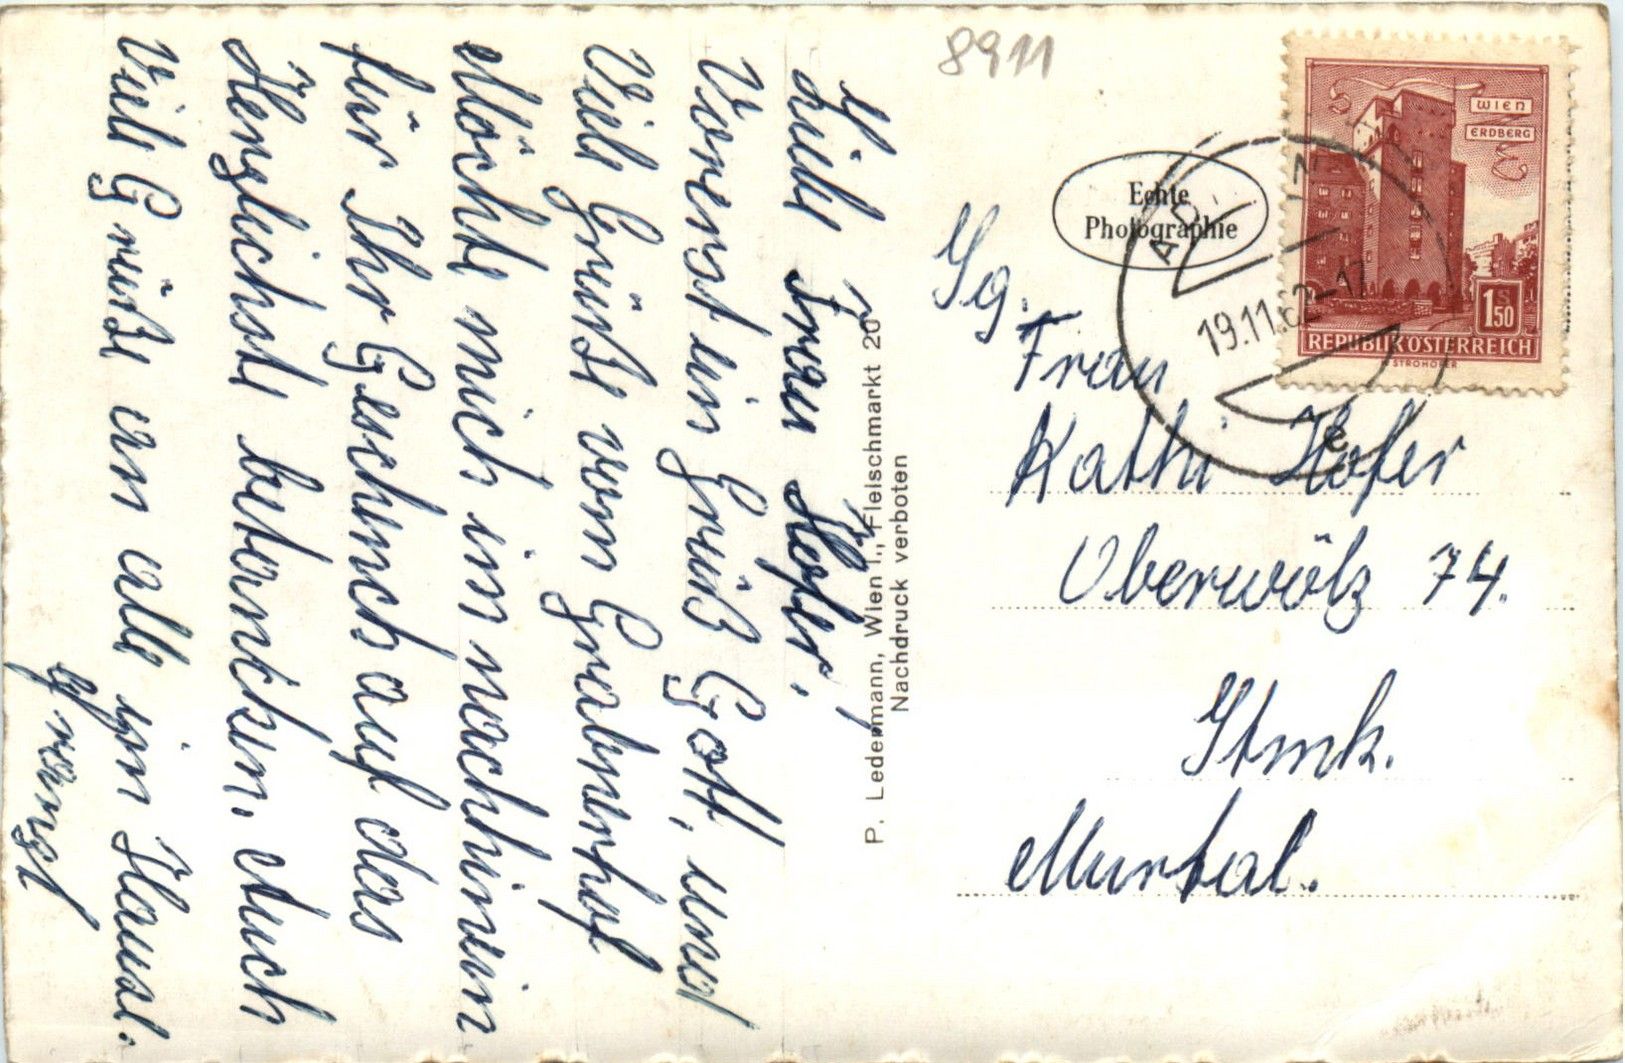 8911
Liebe Frau Hofer,
Vorerst ein Grüß Gott, und
Viele Grüße vom Grabnerhof
Möchte mich im nachhinein
für Ihr Geschenck auf das
Herzlichste bedancken. Auch
Viele Grüße an alle im Hause.
P. Ledermann, Wien I., Fleischmarkt 20
Nachdruck verboten
Echte
Photographie
WIEN
ERDBERG
1 S 50
REPUBLIK ÖSTERREICH
STROHOFER
19.11.62-17
Frau
Kathi Hofer
Oberwölz 74.
Stmk.
Murtal.